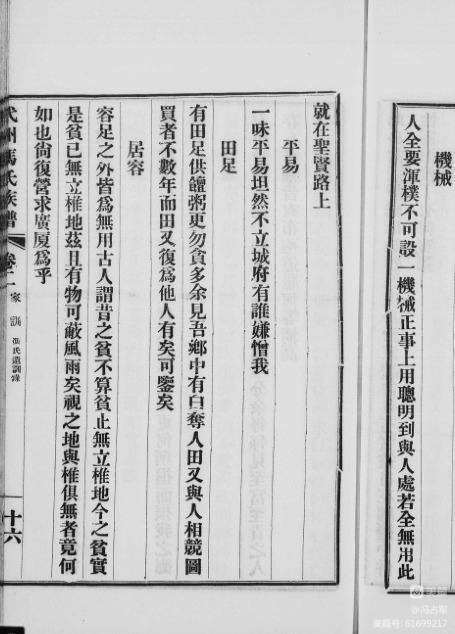 機械
人全要渾樸不可設一機械正事上用聰明到與人處若全無用此
就在聖賢路上
平易
一味平易坦然不立城府有誰嫌憎我
田足
有田足供饘粥更勿貪多余見吾鄉中有白奪人田又與人相競圖
買者不數年而田又復爲他人有矣可鑒矣
居容
容足之外皆爲無用古人謂昔之貧不算貧止無立椎地今之貧實
是貧已無立椎地茲且有物可蔽風雨矣視之地與椎俱無者竟何
如也尙復營求廣厦爲乎
代州馮氏族譜 卷二 家訓 馮氏遺訓錄 十六
美篇
@冯占军
美篇号: 61699217